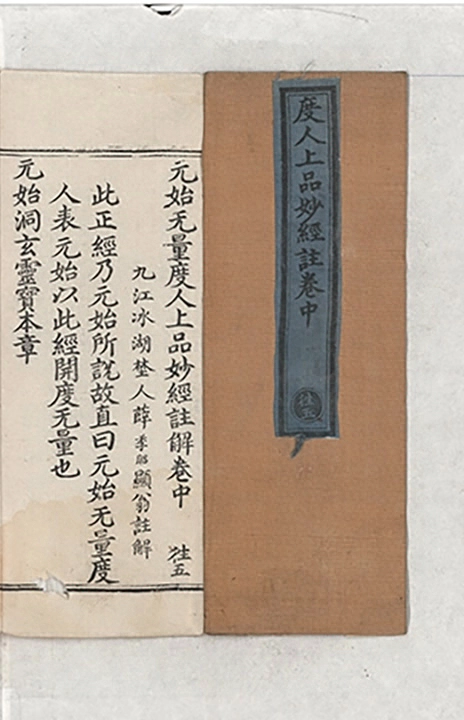 度人上品妙經註卷中
往五
元始无量度人上品妙經註解卷中 往五
九江冰湖整人薛季昭顯翁註解
此正經乃元始所說故直曰元始无量度
人表元始以此經開度无量也
元始洞玄靈寶本章